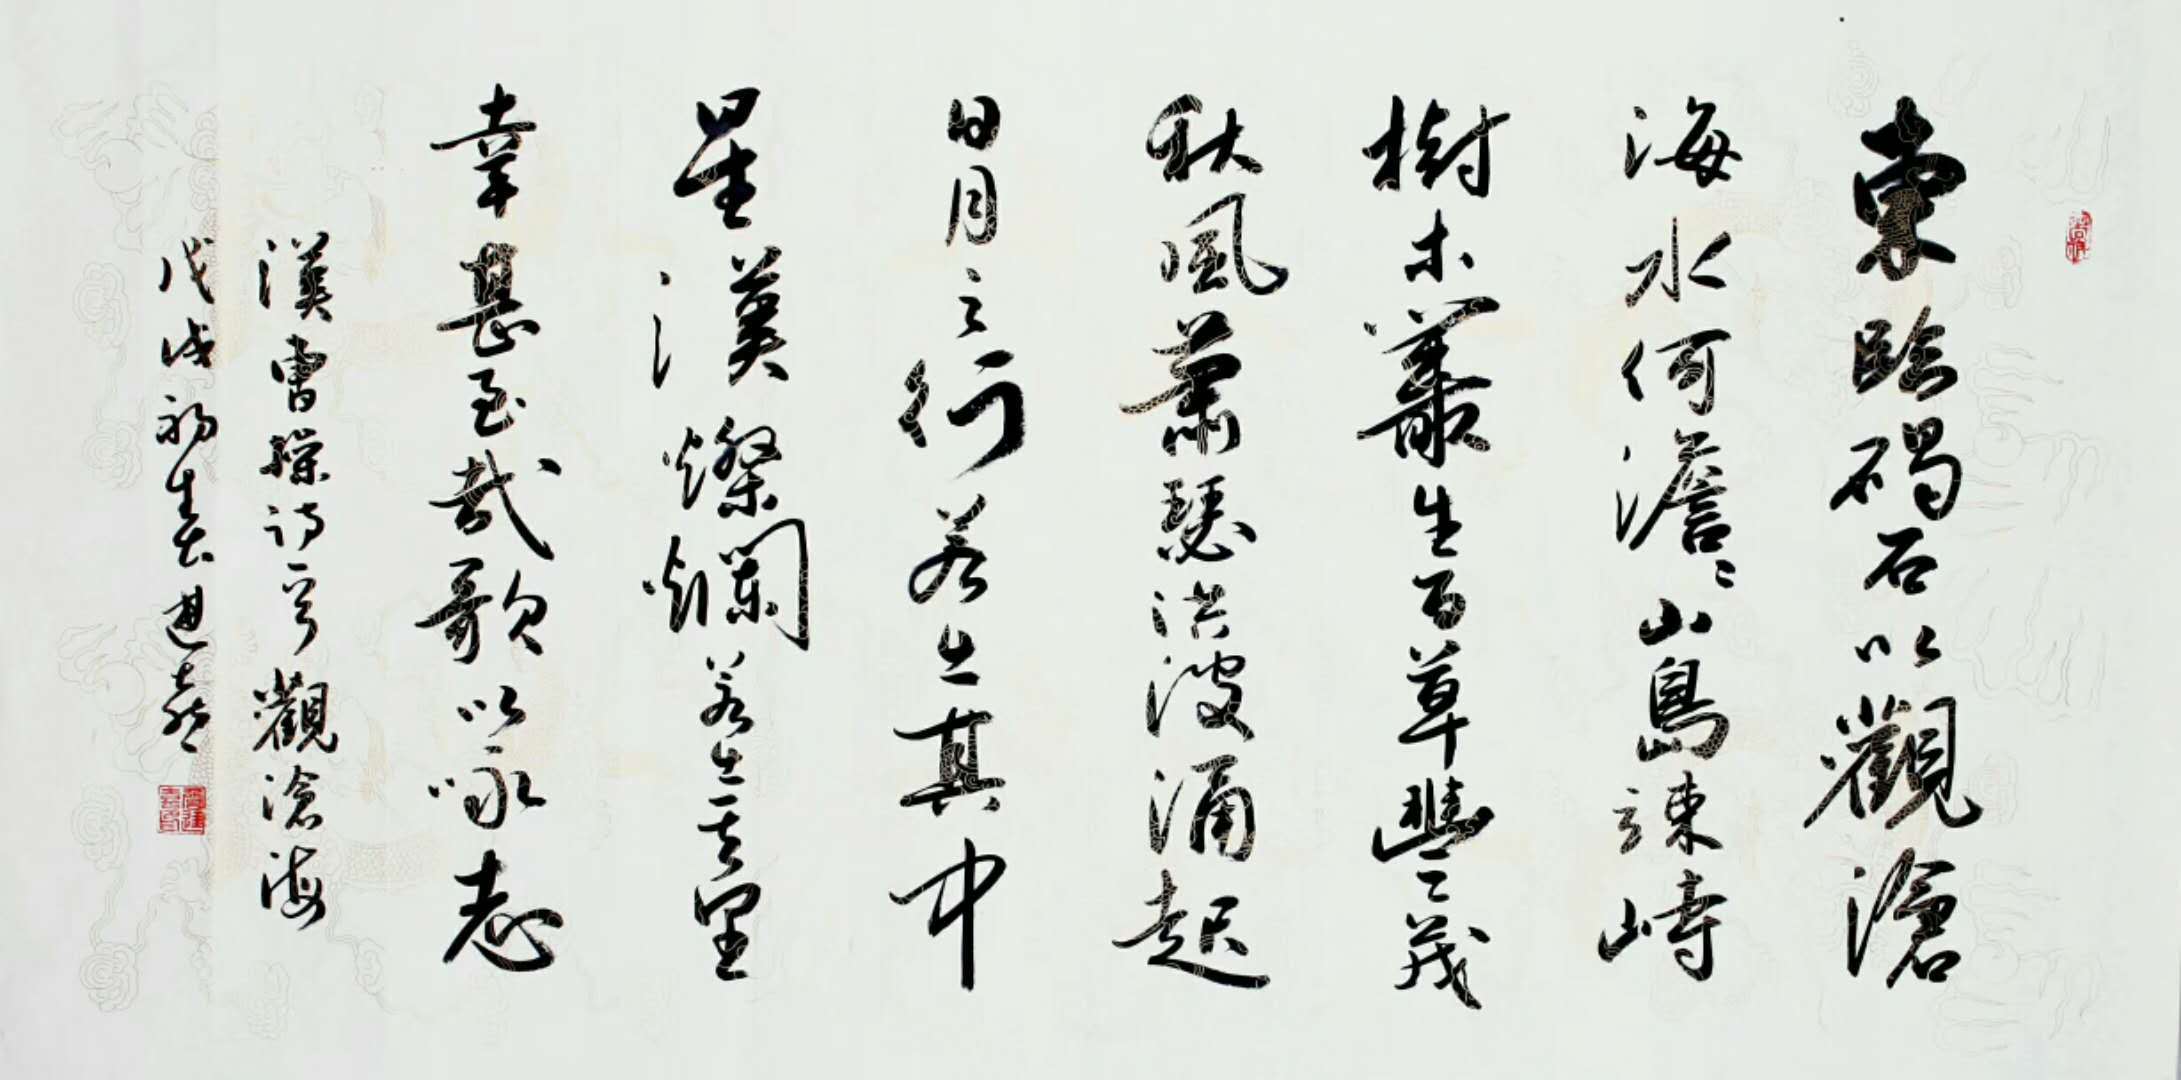 東臨碣石以觀滄
海水何澹〻山島竦峙
樹木叢生百草豐茂
秋風蕭瑟洪波涌起
日月之行若出其中
星漢燦爛若出其里
幸甚至哉歌以詠志
漢曹操詩一首觀滄海
戊戌初春建喜